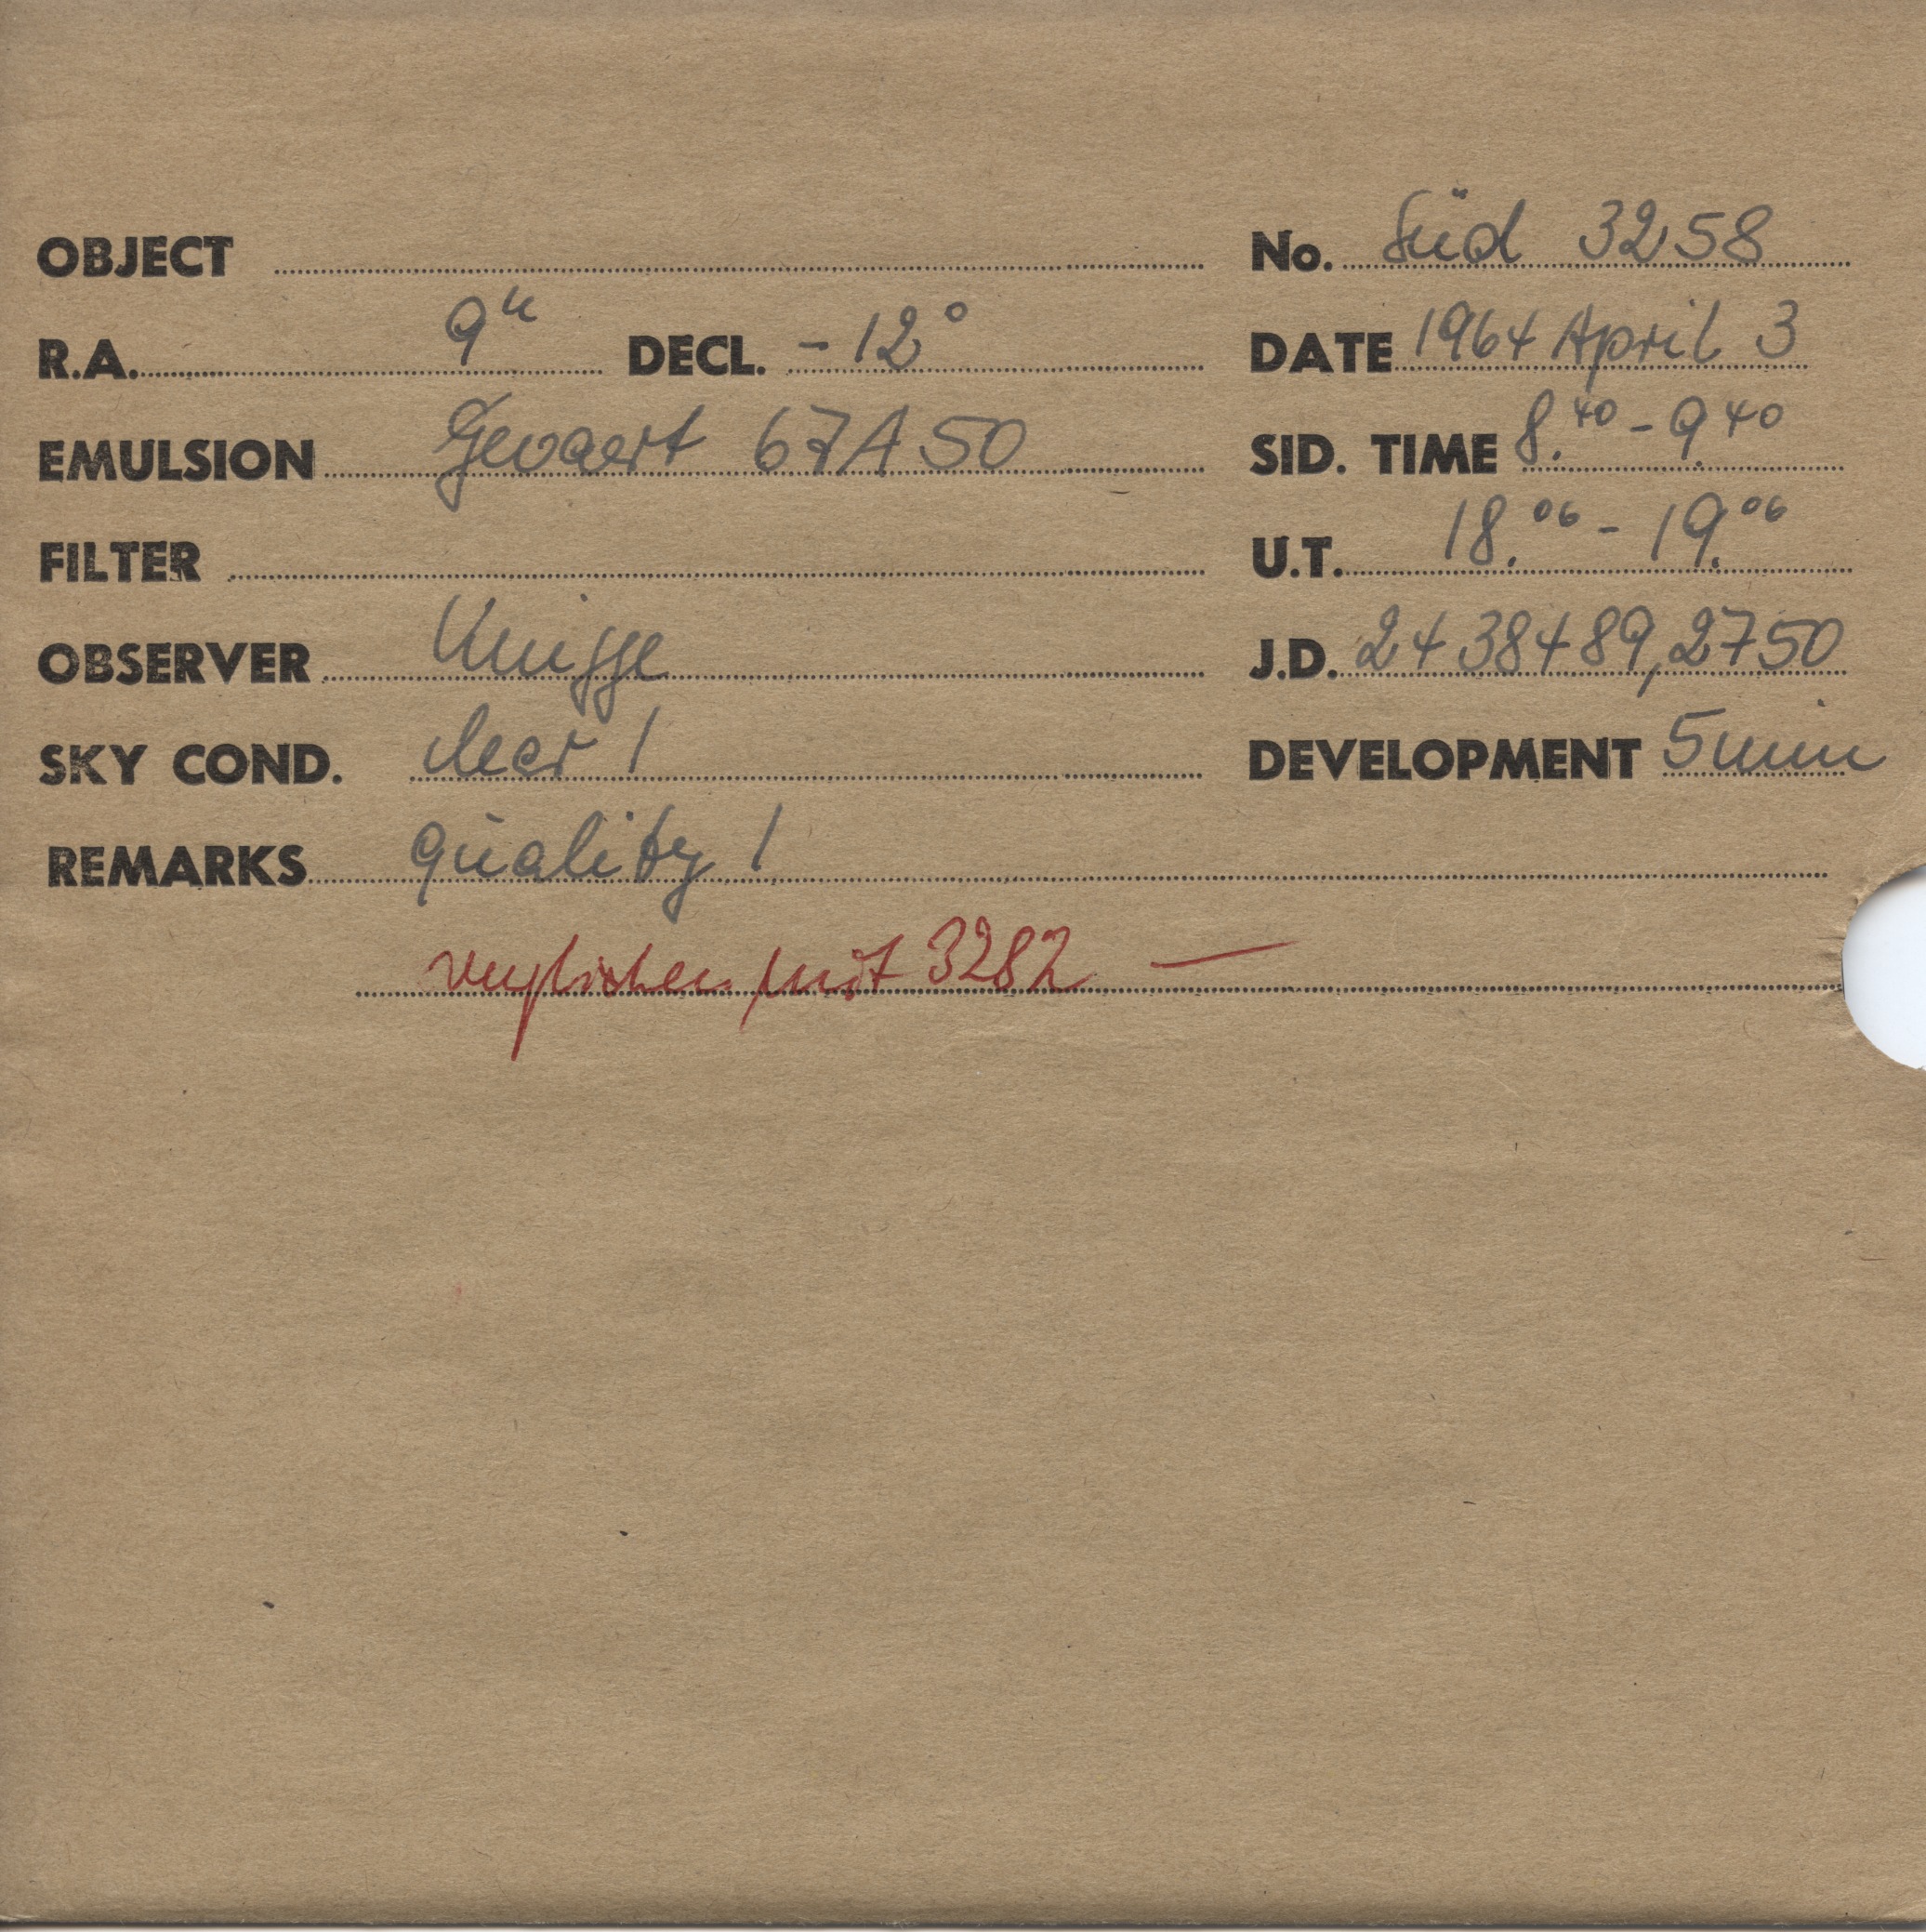 OBJECT No. Süd 3258
R.A. 9h DECL. -12° DATE 1964 April 3
EMULSION Gevaert 67A50 SID. TIME 8.40 - 9.40
FILTER U.T. 18.06 - 19.06
OBSERVER Knigge J.D. 2438489,2750
SKY COND. clear 1 DEVELOPMENT 5 min
REMARKS quality 1
verglichen mit 3282 —